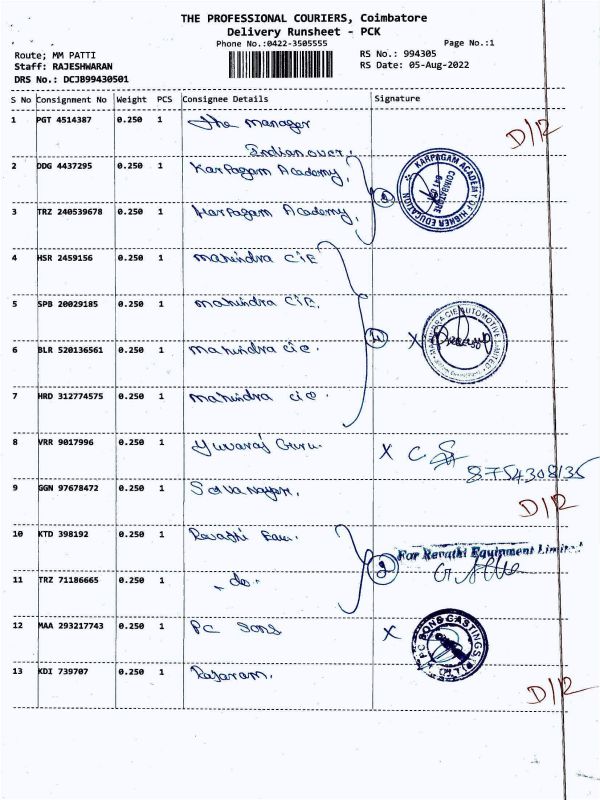 THE PROFESSIONAL COURIERS, Coimbatore
Delivery Runsheet - PCK
Phone No.:0422-3505555 Page No.:1
Route; MM PATTI RS No.: 994305
Staff: RAJESHWARAN RS Date: 05-Aug-2022
DRS No.: DCJB99430501
S No Consignment No Weight PCS Consignee Details Signature
1 PGT 4514387 0.250 1 The manager D/R
2 DDG 4437295 0.250 1 Karpagam Academy, KARPAGAM ACADEMY OF HIGHER EDUCATION COIMBATORE
3 TRZ 240539678 0.250 1 Karpagam Academy,
4 HSR 2459156 0.250 1 mahindra CIE
5 SPB 20029185 0.250 1 mahindra CIE. MAHINDRA CIE AUTOMOTIVE LIMITED
6 BLR 520136561 0.250 1 mahindra cie. X
7 HRD 312774575 0.250 1 mahindra cie.
8 VRR 9017996 0.250 1 Yuvaraj Guru. X
8754308135
9 GGN 97678472 0.250 1 D/R
10 KTD 398192 0.250 1 For Revathi Equipment Limited
11 TRZ 71186665 0.250 1 - do -
12 MAA 293217743 0.250 1 PC Sons X PC SONS CASTINGS
13 KDI 739707 0.250 1 Rajaram. D/R